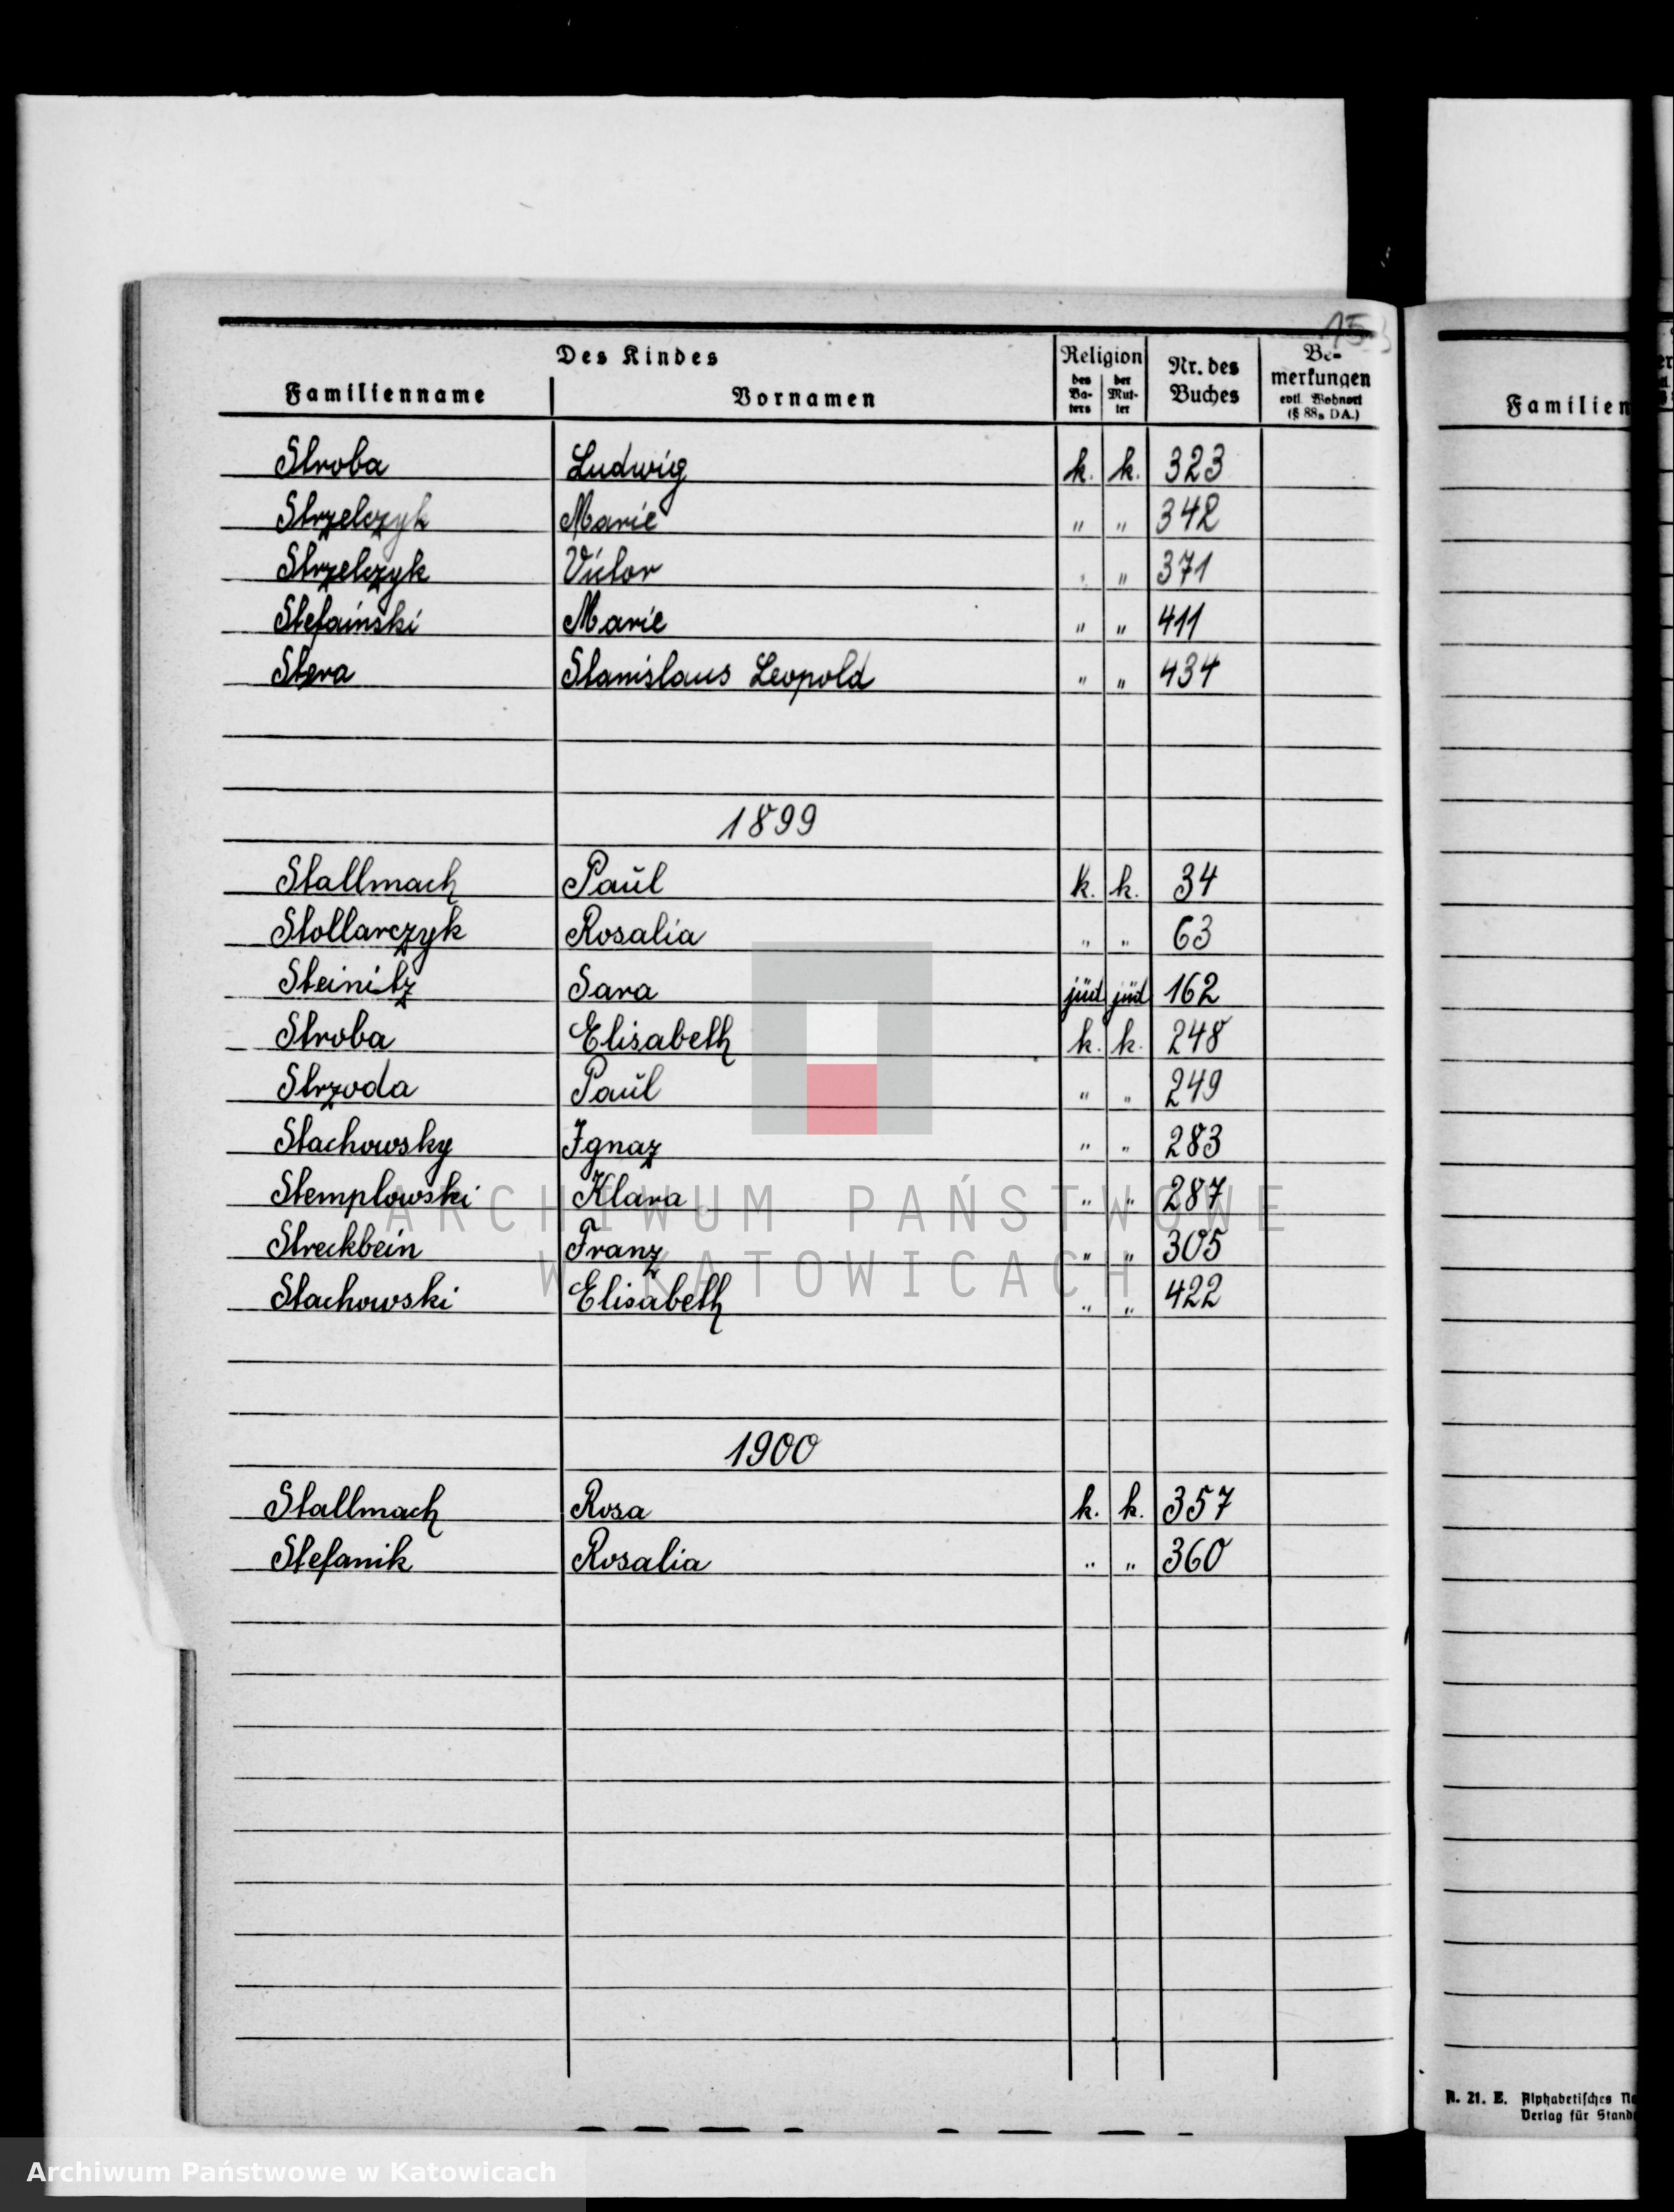 15
Des Kindes
Religion
Nr. des Buches
Be-
merkungen
evtl. Wohnort
(§ 88a DA.)
Familienname
Vornamen
des Va-ters
der Mut-ter
Familien
Stroba Ludwig k. k. 323
Strzelczyk Marie " " 342
Strzelczyk Victor " " 371
Stefainski Marie " " 411
Stanislaus Leopold " " 434
1899
Stallmach Paŭl k. k. 34
Stollarczyk Rosalia " " 63
Steinitz Sara jüd jüd 162
Stroba Elisabeth k. k. 248
Strzoda Paŭl " " 249
Stachowsky Ignaz " " 283
Stemplowski Klara " " 287
Streckbein Franz " " 305
Stachowski Elisabeth " " 422
1900
Stallmach Rosa k. k. 357
Stefanik Rosalia " " 360
ARCHIWUM PAŃSTWOWE
W KATOWICACH
A. 21. E. Alphabetisches Na
Verlag für Stand
Archiwum Państwowe w Katowicach